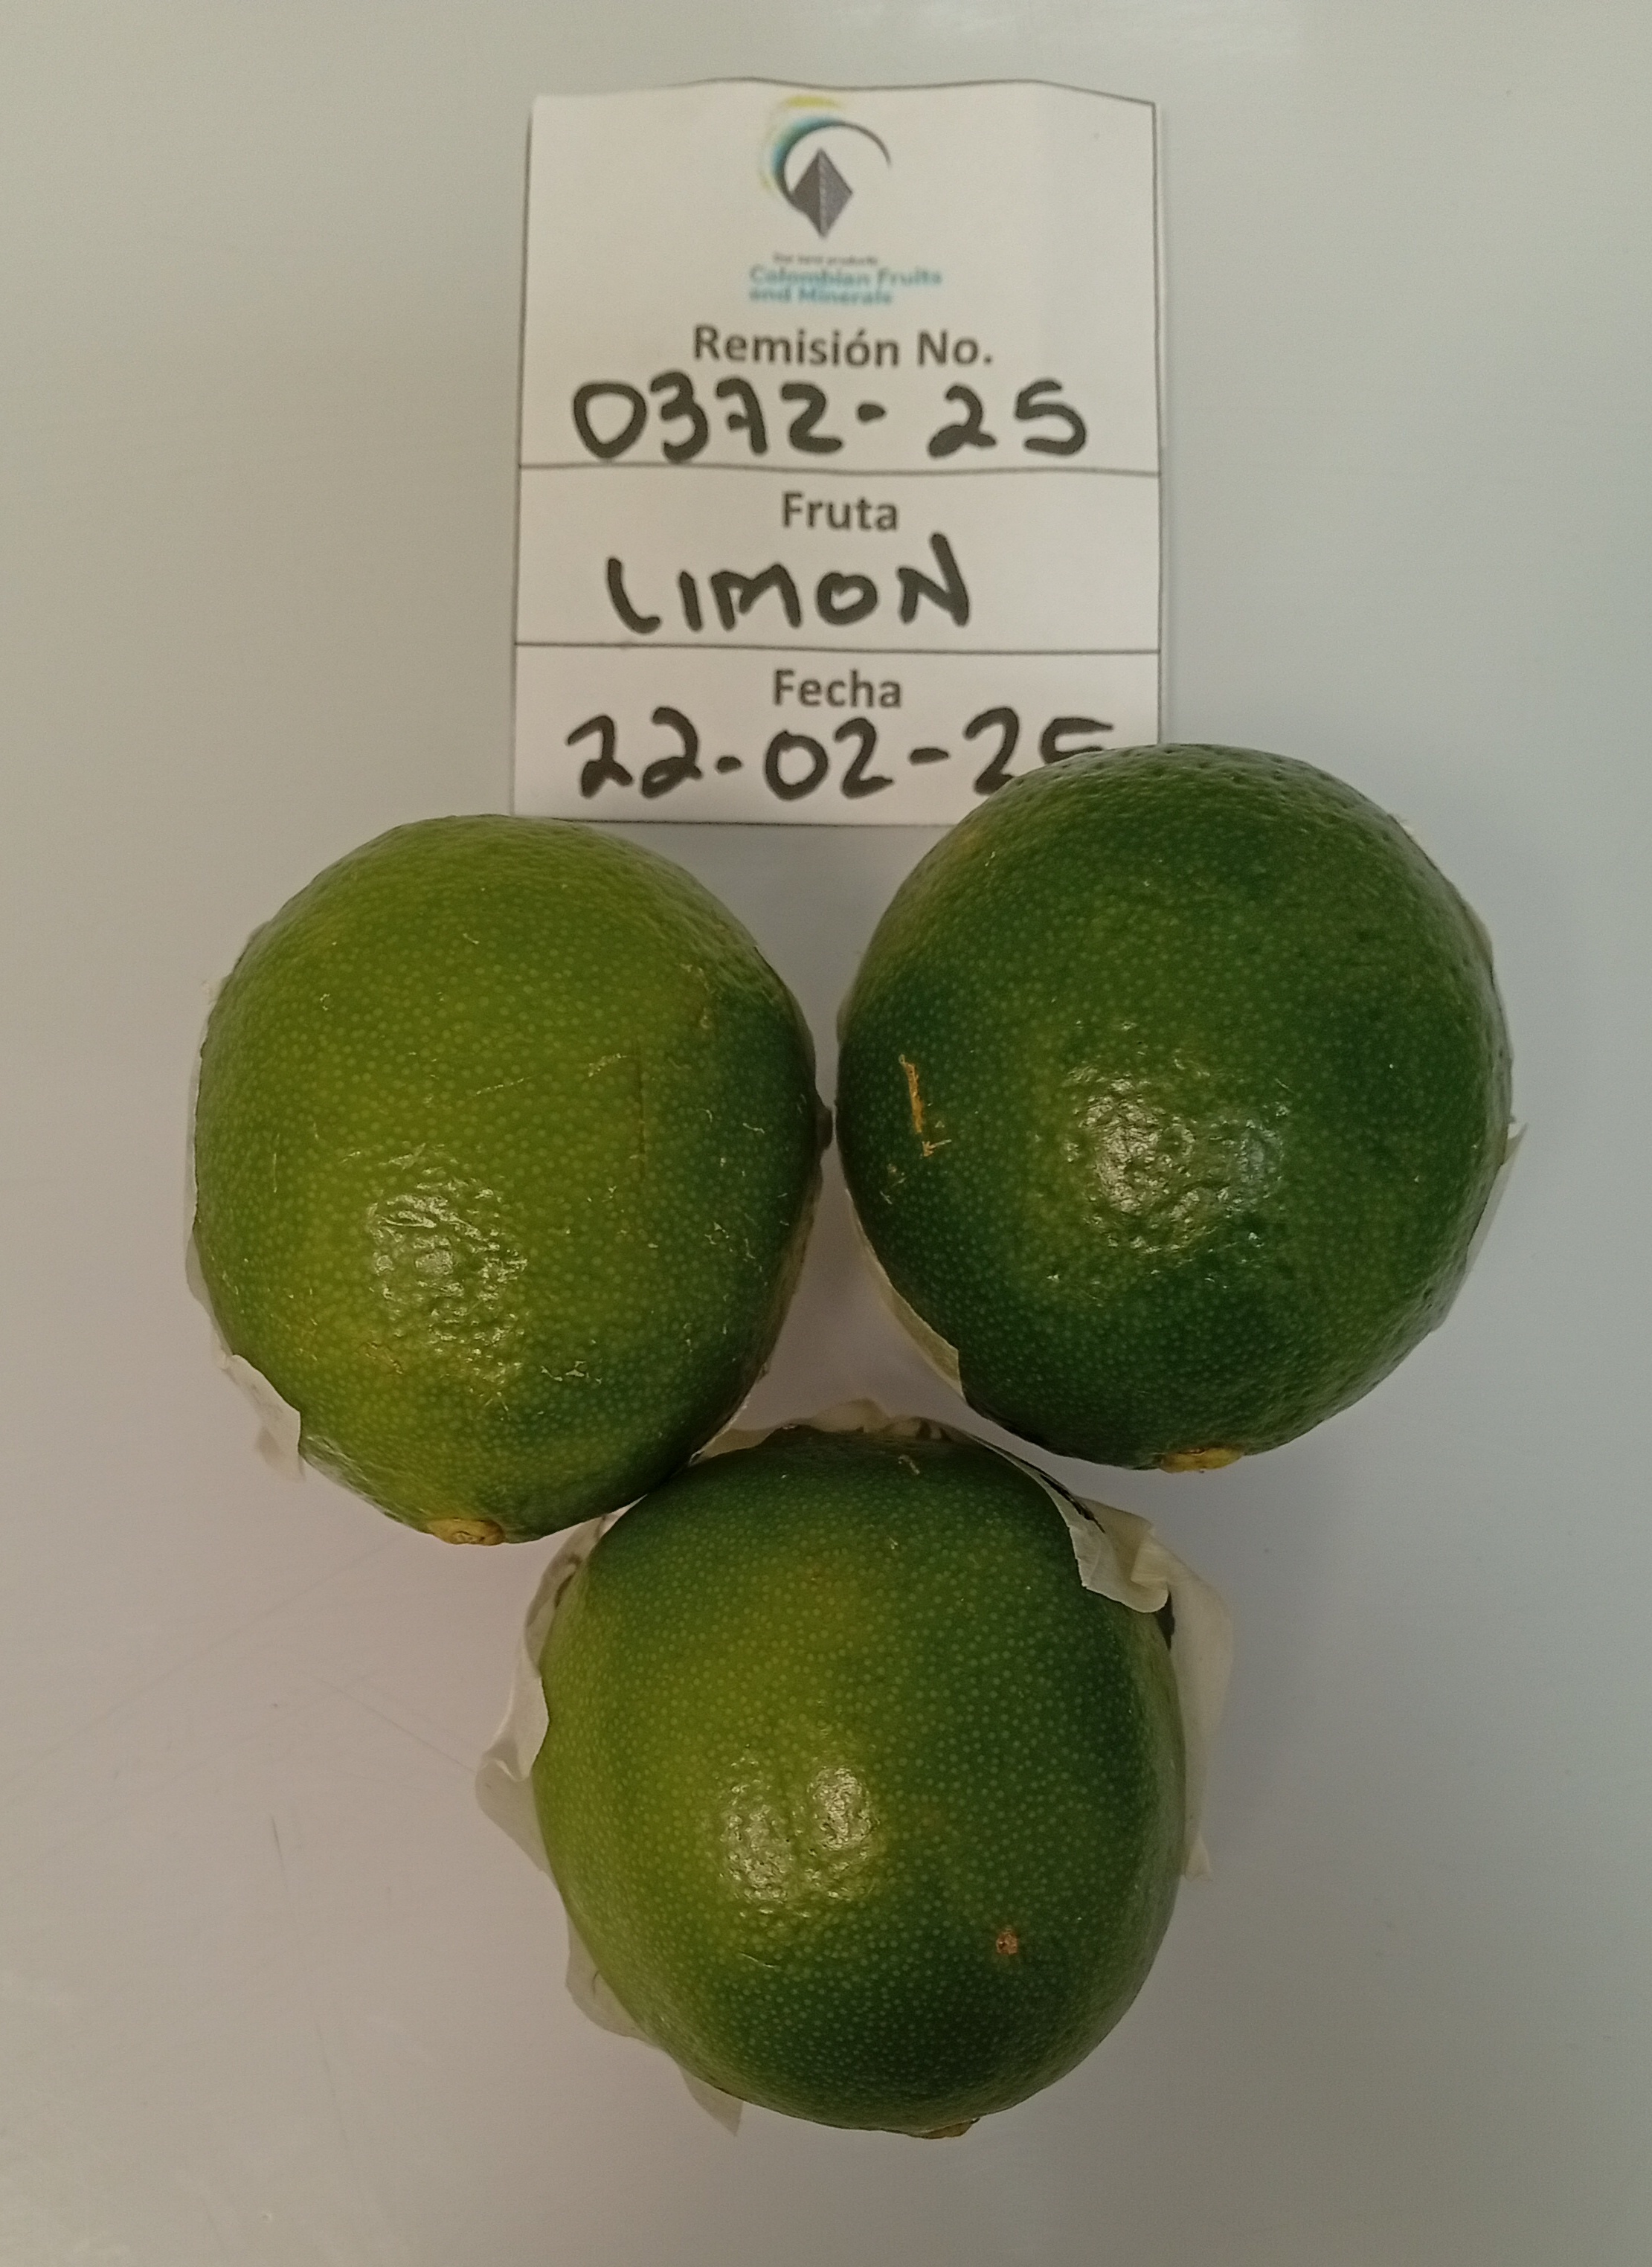 Our land products
Colombian Fruits
and Minerals
Remisión No.
0372-25
Fruta
LIMON
Fecha
22-02-25